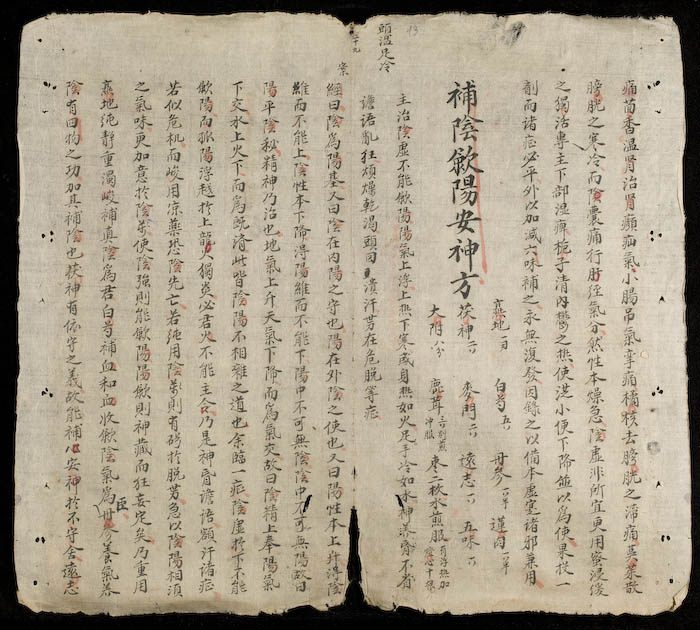 痛茴香温腎治胃癲疝氣小腸吊氣睾痛橘核去膀胱之滞痛茱茱散
膀胱之寒冷而陰囊痛行肝經氣分然性本燥急陰虚非所宜更用蜜浸緩
之獨活專主下部湿痺梔子清内欎之热使洗小便下降並以為使果投一
剤而诸症必平外以加减六味補之永無復發因録之以備本虚寔诸邪兼用
補陰歛陽安神方
熟地一两 白芍五 丹參
茯神 麥門 遠志 五味
大附八分 鹿茸 沖服 棗二枚水煎服
主治陰虚不能歛陽陽氣上浮上热下寒或身热如火足手冷如氷神昏不省
譫语亂狂煩燥乾渴頭面潰汗势在危脱等症
頭温足冷
案
經曰陰為陽基又曰陰在内陽之守也陽在外陰之使也又曰陽性本上升淂陰
維而不能上陰性本下降淂陽維而不能下陽中不可無陰陰中不可無陽故曰
陽平陰秘精神乃治也地氣上升天氣下降而為氣交故曰陰精上奉陽氣
下交水上火下而為既濟此皆陰陽不相離之道也余臨一症陰虚於下不能
歛陽而孤陽浮越於上龍火獨炎必君火不能主令乃是神昏譫语額汗诸症
若似危机而峻用凉藥恐陰先亡若纯用陰藥則有碍於脱势急以陰陽相湏
之氣味更加意於陰藥使陰强則能歛陽陽歛則神藏而狂妄定矣乃重用
熟地纯静重濁峻補真陰為君白芍補血和血收歛陰氣為臣丹參養氣养
陰有四物之功加其補陰也茯神有依守之義故能補心安神於不守舍遠志